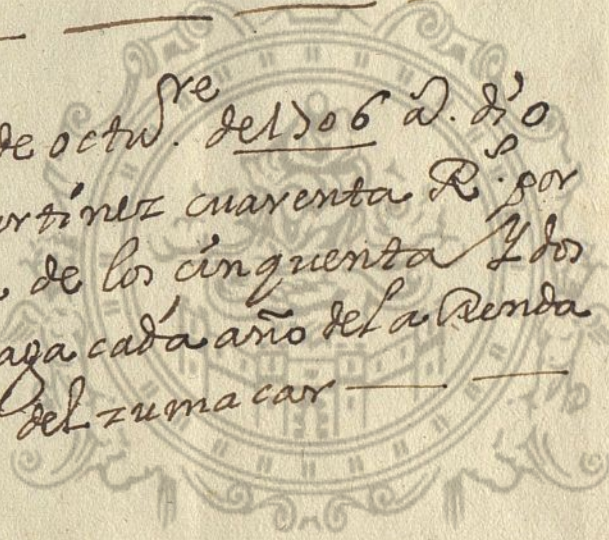 de octuᵇʳᵉ. de 1706 a. dio
artinez cuarenta Rˢ. por
de los cinquenta Y dos
aga cada año de la Renda
del zumacar